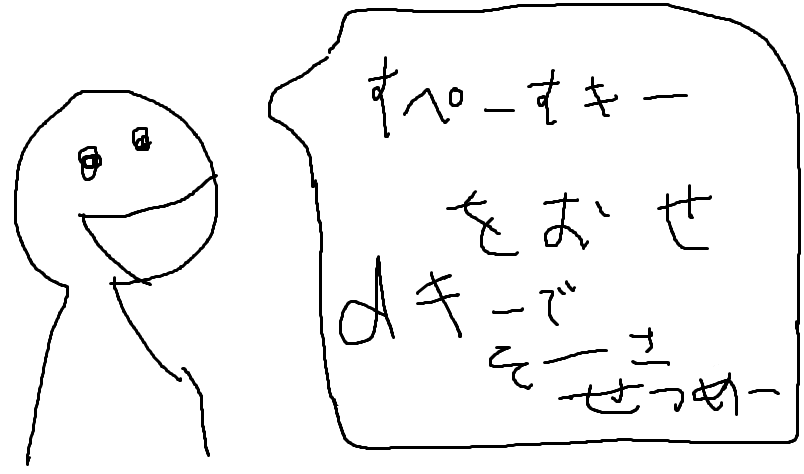 すぺーすきー
をおせ
dキーで
そーさ
せつめー